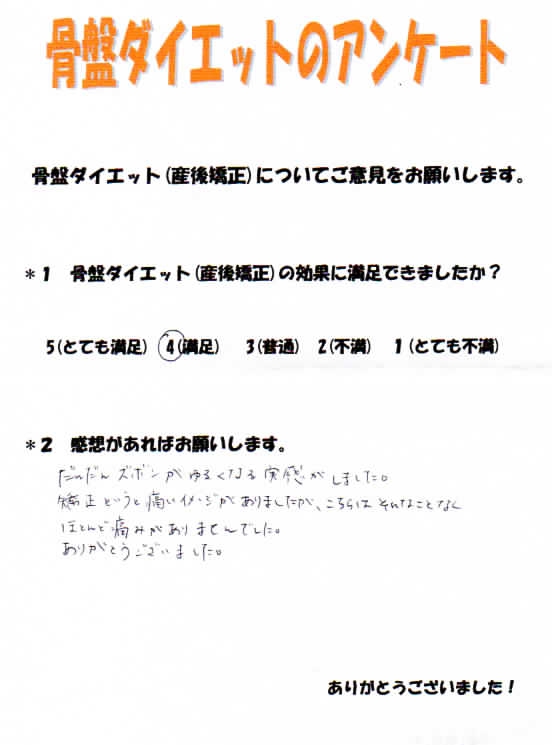 骨盤ダイエットのアンケート
骨盤ダイエット(産後矯正)についてご意見をお願いします。
*1 骨盤ダイエット(産後矯正)の効果に満足できましたか?
5(とても満足) 4(満足) 3(普通) 2(不満) 1(とても不満)
*2 感想があればお願いします。
だんだんズボンがゆるくなる実感がしました。
矯正というと痛いイメージがありましたが、こちらはそんなことなく
ほとんど痛みがありませんでした。
ありがとうございました。
ありがとうございました!